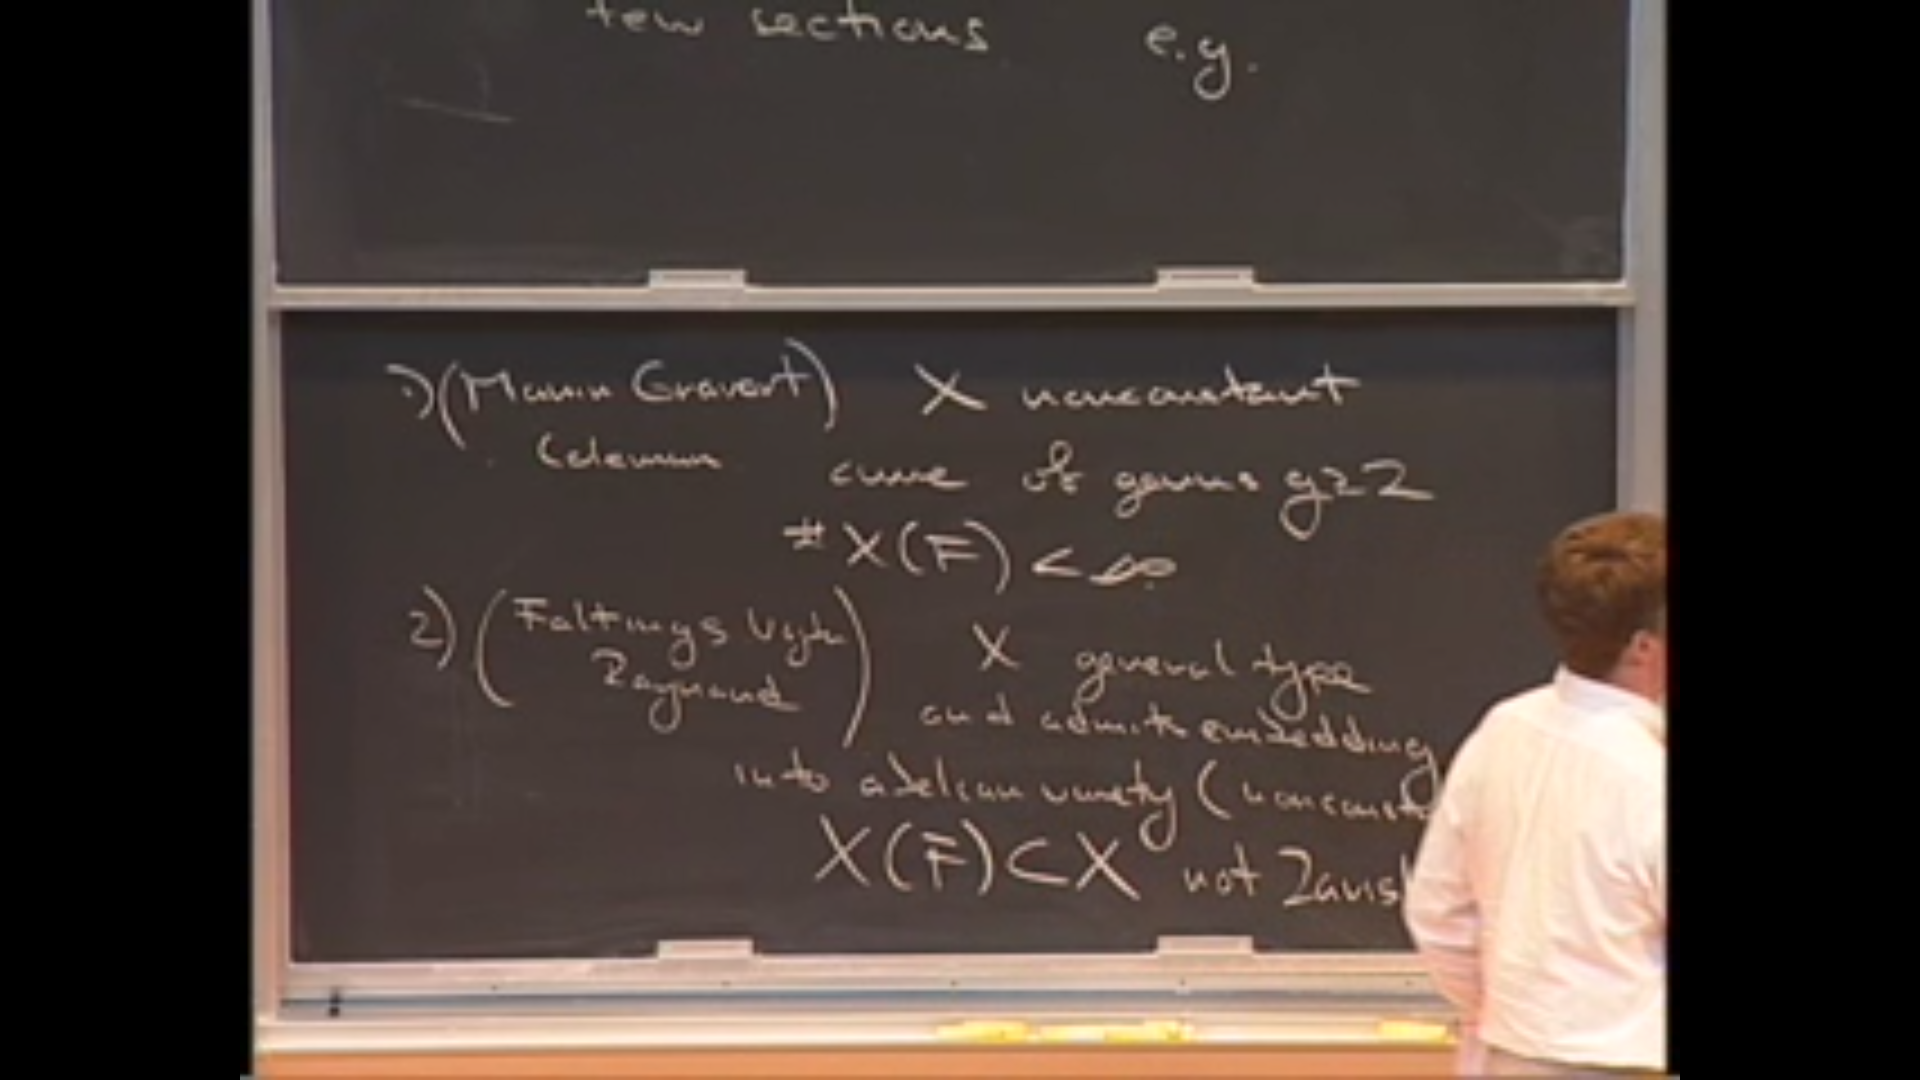 few sections e.g.
1) (Manin Gravert) X nonconstant
Coleman curve of genus g≥2
#X(F) < ∞
2) (Faltings Vojta X general type
Raynaud) and admits embedding
into abelian variety (nonconst
X(F) ⊂ X not Zaris